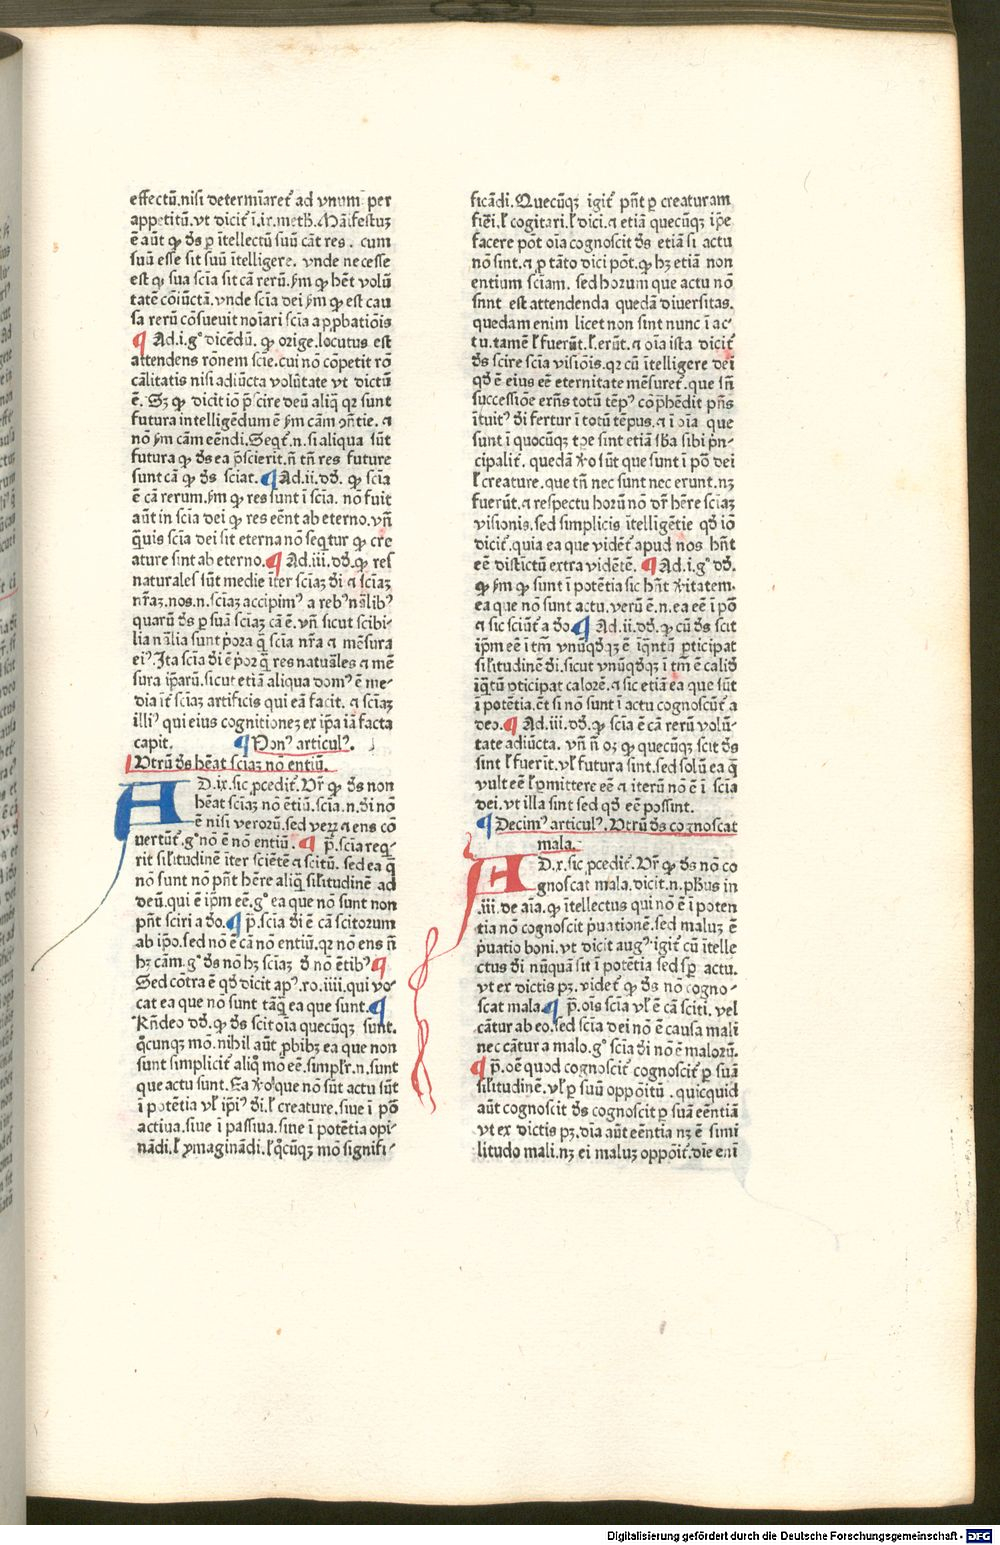 effectū.nisi determīaret᷑ ad vnum per
appetitū.vt dicit᷑ ī.ix.meth.Māifestuꝫ
ē aūt ꝙ d̄s ꝑ ītellectū suū cāt res. cum
suū esse sit suū ītelligere. vnde necesse
est ꝙ sua scīa sit cā rerū.ẜm ꝙ hēt volū
tatē cōiūctā.vnde scīa dei ẜm ꝙ est cau
sa rerū cōsueuit noīari scīa approbatiōis
¶ Ad.i.gº dicēdū. ꝙ orige.locutus est
attendens rōnem scīe.cui nō cōpetit rō
cālitatis nisi adiūcta volūtate vt dictū
ē. Sꝫ ꝙ dicit iō p̄scire deū aliq̄ qꝛ sunt
futura intelligēdum ē ẜm cām ꝯn̄tie. ⁊
nō ẜm cām eēndi. Seqt᷑.n.si aliqua sūt
futura ꝙ d̄s ea p̄scierit.n̄ tn̄ res future
sunt cā ꝙ d̄s sciat. ¶ Ad.ii.dd̄. ꝙ scīa
ē cā rerum.ẜm ꝙ res sunt ī scīa. nō fuit
aūt in scīa dei ꝙ res eēnt ab eterno.vn̄
q̄uis scīa dei sit eterna nō seqtur ꝙ cre
ature sint ab eterno. ¶ Ad.iii.dd̄.ꝙ res
naturales sūt medie īter sciāꝫ di ⁊ sciāꝫ
nr̄aꝫ.nos.n.sciāꝫ accipimꝰ a rebꝰ nālibꝰ
quarū d̄s ꝑ suā sciāꝫ cā ē. vn̄ sicut scibi-
lia nālia sunt p̄ora q̄ scīa nr̄a ⁊ mēsura
eiꝰ. Ita scīa di ē p̄or q̄ res natuāles ⁊ mē
sura ip̄arū.sicut etiā aliqua domꝰ ē me-
dia īt᷑ sciāꝫ artificis qui eā facit. ⁊ sciāꝫ
illiꝰ qui eius cognitioneꝫ ex ip̄a iā facta
capit. ¶ Nonꝰ articulꝰ.
Vtrū d̄s hēat sciaꝫ nō entiū.
AD.ix.sic ꝓcedit᷑. Vr̄ ꝙ d̄s non
hēat sciāꝫ nō ētiū.scīa.n.di nō
ē nisi verorū.sed verꝝ ⁊ ens cō
uertūt᷑.gº nō ē nō entiū. ¶ p̄.scīa req̄-
rit sil̄itudinē īter sciētē ⁊ scitū. sed ea q̄
nō sunt nō pn̄t hēre aliq̄ sil̄itudinē ad
deū.qui ē ip̄m eē.gº ea que nō sunt non
pn̄t sciri a do. ¶ p̄.scīa di ē cā scitorum
ab ip̄o.sed nō ē cā nō entiū.qꝛ nō ens n̄
hꝫ cām.gº d̄s nō hꝫ sciāꝫ d̄ nō ētibꝰ ¶
Sed cōtra ē qd̄ dicit apꝰ.ro.iiii.qui vo-
cat ea que nō sunt tāq̄ ea que sunt. ¶
Rn̄deo dd̄. ꝙ d̄s scit oīa quecūqꝫ sunt.
q̄cunqꝫ mō.nihil aūt ꝓhibꝫ ea que non
sunt simplicit᷑ aliq̄ mo eē.simpl̄r.n.sunt
que actu sunt. Ea v̄o que nō sūt actu sūt
ī potētia vl̄ ip̄iꝰ di.l̄ creature, siue ī pō
actiua.siue ī passiua.siue ī potētia opi-
nādi.l̄ ymaginādi.l̄ q̄cūqꝫ mō signifi-
ficādi. Quecūqꝫ igit᷑ pn̄t ꝑ creaturam
fieri.l̄ cogitari.l̄ dici.⁊ etiā quecūqꝫ ip̄e
facere pōt oīa cognoscit d̄s etiā si actu
nō sint.⁊ ꝓ tāto dici pōt. ꝙ hꝫ etiā non
entium sciām. sed horum que actu nō
sunt est attendenda quedā diuersitas.
quedam enim licet non sint nunc ī ac-
tu.tamē l̄ fuerūt.l̄ erūt.⁊ oīa ista dicit᷑
d̄s scire scīa visiōis.qꝛ cū ītelligere dei
qd̄ ē eius eē eternitate mēsuret᷑.que sn̄
successiōe ern̄s totū tēpꝰ cōp̄hēdit pn̄s
ītuitꝰ di fertur ī totū tēpus.⁊ ī oīa que
sunt ī quocūqꝫ tp̄e sint etiā sb̄a sibi p̄n-
cipalit᷑. quedā v̄o sūt que sunt ī pō dei
l̄ creature.que tn̄ nec sunt nec erunt.nꝫ
fuerūt.⁊ respectu horū nō dr̄ hēre sciaꝫ
visionis.sed simplicis ītelligētie qd̄ iō
dicit᷑.quia ea que vidēt᷑ apud nos hn̄t
eē distīctū extra vidētē. ¶ Ad.i.gº dd̄.
ꝙ ẜm ꝙ sunt ī potētia sic hn̄t v̄itatem.
ea que nō sunt actu.verū ē.n.ea eē ī pō
⁊ sic sciūt᷑ a do ¶ Ad.ii.dd̄.ꝙ cū d̄s sit
ip̄m eē ī tm̄ vnūqd̄qꝫ ē īqntū ꝑticipat
sil̄itudinē di.sicut vnūqd̄qꝫ ī tm̄ ē calid̄
īq̄tū ꝑticipat calorē.⁊ sic etiā ea que sūt
ī potētia.et si nō sunt ī actu cognoscūt᷑ a
deo. ¶ Ad.iii.dd̄.ꝙ scīa ē cā rerū volū-
tate adiūcta. vn̄ n̄ oꝫ ꝙ quecūqꝫ scit d̄s
sint l̄ fuerīt.vl̄ futura sint.sed solū ea q̄
vult eē l̄ ꝑmittere eē ⁊ iterū nō ē ī scīa
dei.vt illa sint sed qd̄ eē possint.
¶ Decimꝰ articulꝰ. Vtrū d̄s cognoscat
mala.
AD.x.sic ꝓcedit᷑. Vr̄ ꝙ d̄s nō co
gnoscat mala.dicit.n.phus in
.iii.de aīa.ꝙ ītellectus qui nō ē ī poten
tia nō cognoscit p̄uationē.sed maluꝫ ē
p̄uatio boni.vt dicit augꝰ.igit᷑ cū ītelle
ctus di nūquā sit ī potētia sed sp̄ actu.
vt ex dictis pꝫ.videt᷑ ꝙ d̄s nō cogno-
scat mala. ¶ p̄.oīs scīa vl̄ ē cā sciti. vel
cātur ab eo.sed scīa dei nō ē causa mali
nec cātur a malo.gº scīa di nō ē malorū.
¶ p̄.oē quod cognoscit᷑ cognoscit᷑ ꝑ suā
sil̄itudinē.vl̄ ꝑ suū oppōitū. quicquid
aūt cognoscit d̄s cognoscit ꝑ suā eēntiā
vt ex dictis pꝫ.dīa aūt eēntia nꝫ ē simi
litudo mali.nꝫ ei maluꝫ oppōit᷑.dīe eni
Digitalisierung gefördert durch die Deutsche Forschungsgemeinschaft - DFG